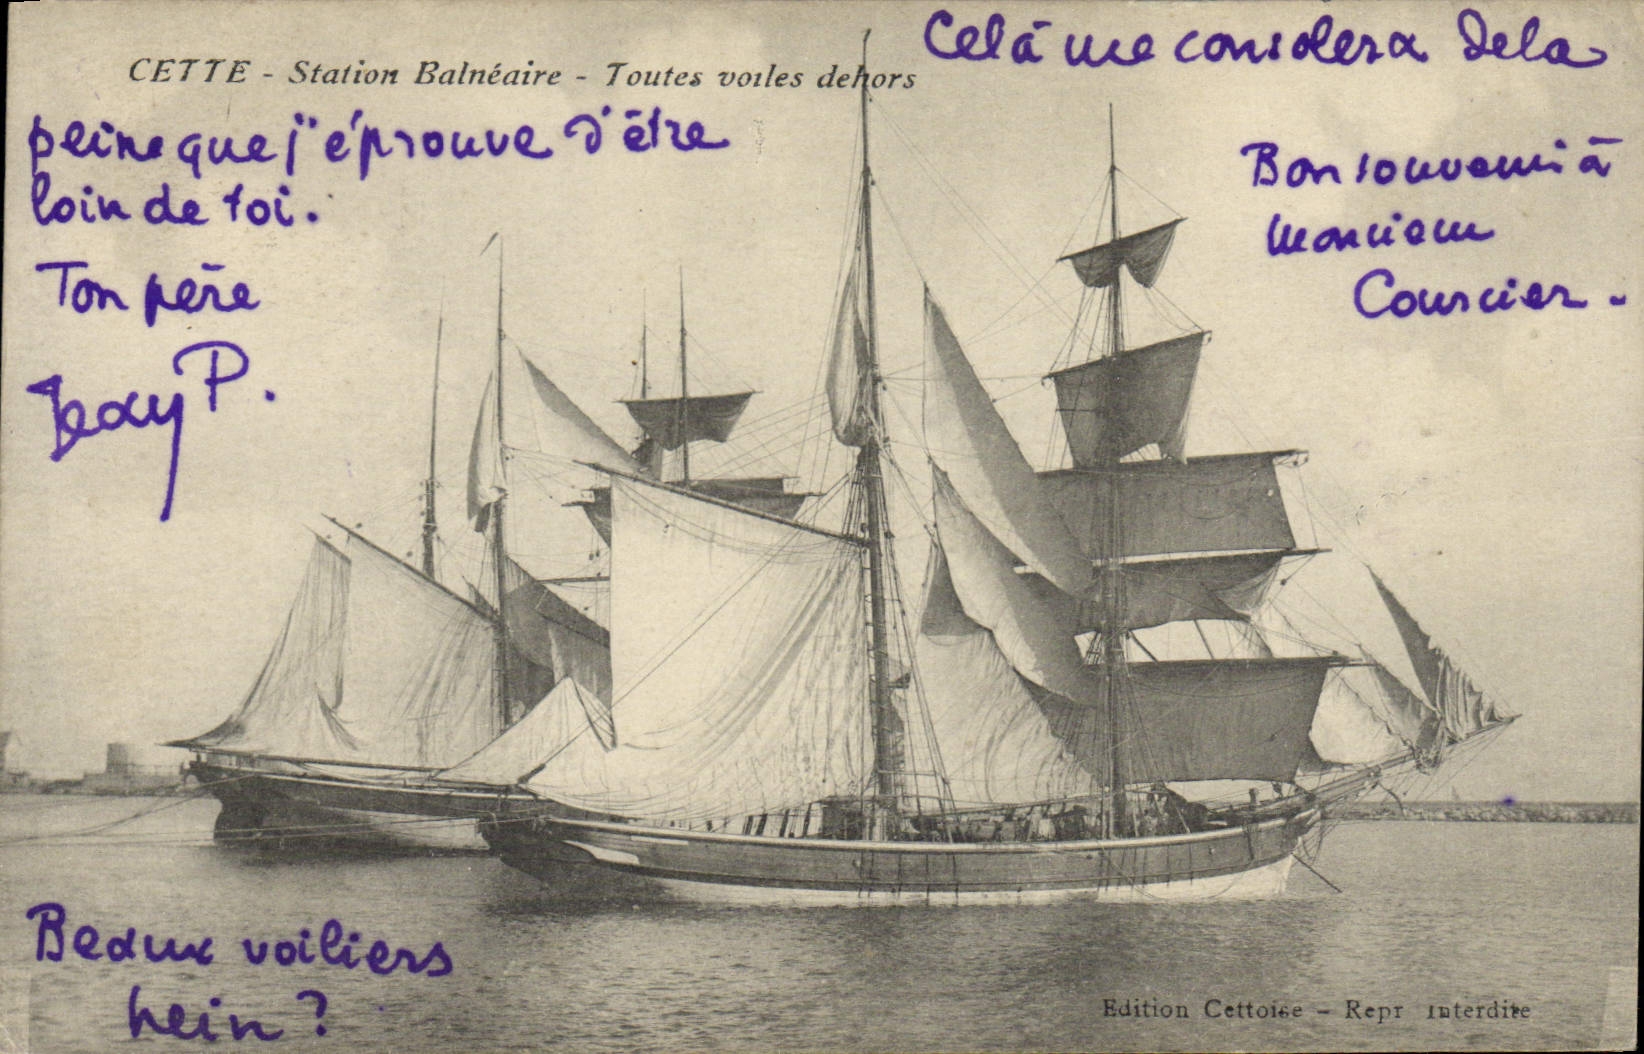 CETTE - Station Balnéaire - Toutes voiles dehors
Celà me consolera de la
peine que j'éprouve d'être
loin de toi.
Ton père
Jean P.
Bon souvenir à
Monsieur
Courcier.
Beaux voiliers
hein ?
Edition Cettoise - Repr interdite